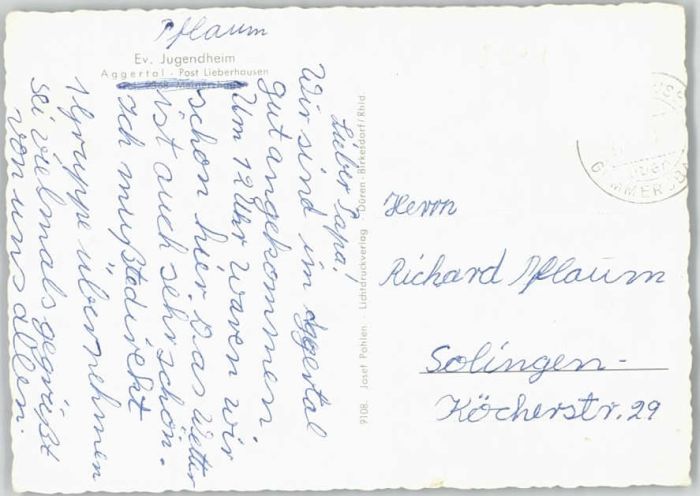 Pflaum
Ev. Jugendheim
Aggertal - Post Lieberhausen
Lieber Papa!
Wir sind im Aggertal
gut angekommen
Um 12 Uhr waren wir
schon hier. Das Wetter
ist auch sehr schön.
Ich mußte direkt
Gruppe übernehmen
Sei vielmals gegrüßt
von uns allen.
9108. Josef Pohlen. Lichtdruckverlag Düren-Birkesdorf/Rhld.
Herrn
Richard Pflaum
Solingen-
Köcherstr. 29
GUMMERSB